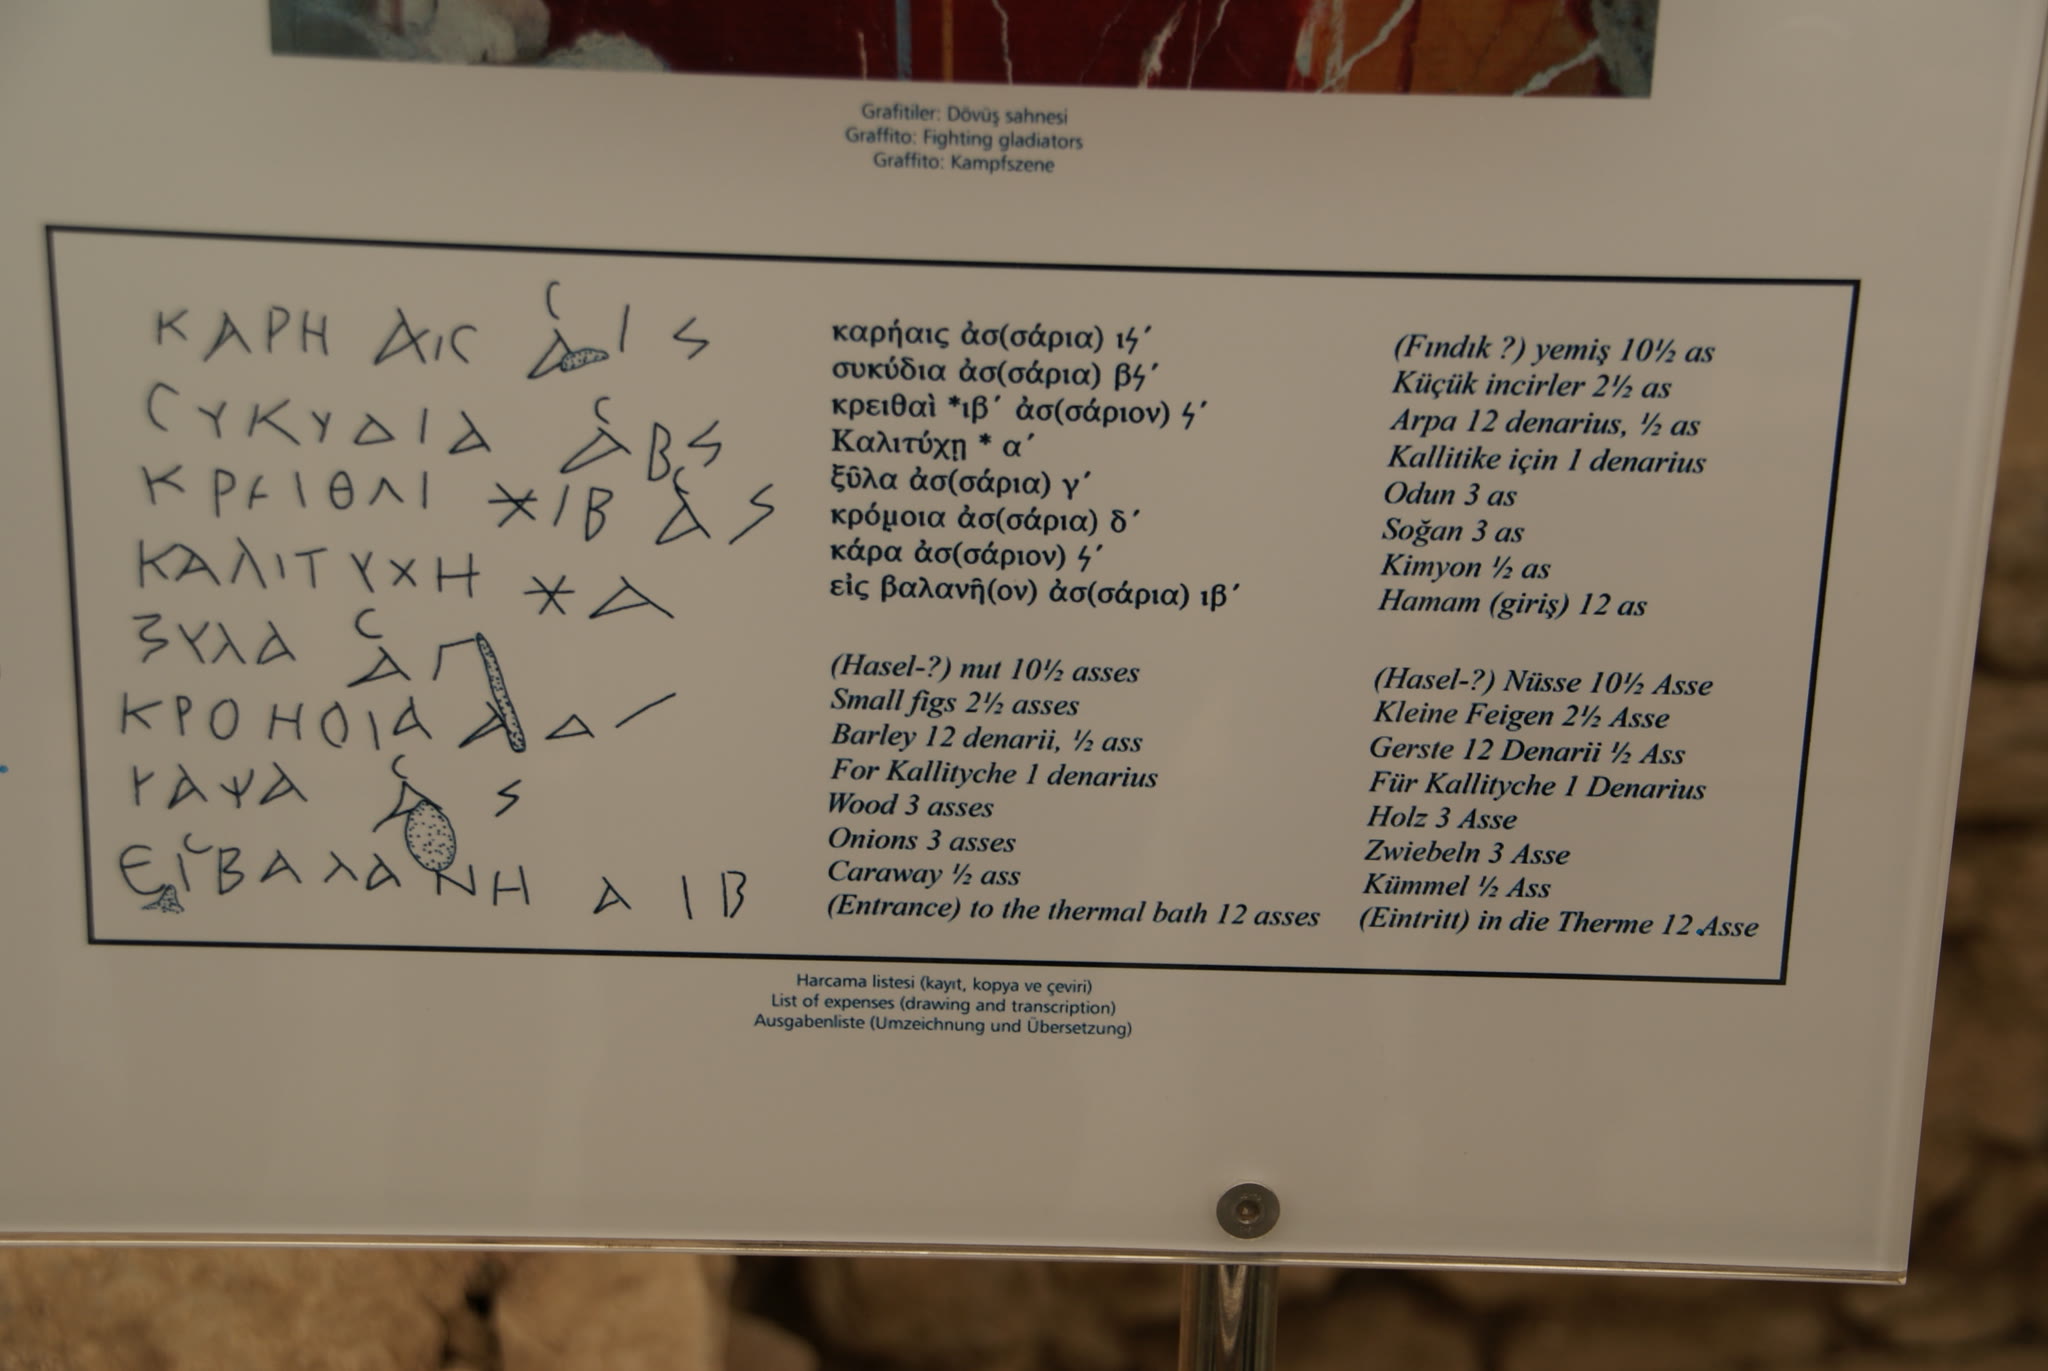 Grafitiler: Dövüş sahnesi
Graffito: Fighting gladiators
Graffito: Kampfszene
ΚΑΡΗ ΑΙϹ Α Ι Ϟ
ϹΥΚΥΔΙΑ Α Β Ϟ
ΚΡΕΙΘΑΙ ΙΒ Α Ϟ
ΚΑΛΙΤΥΧΗ Α
ΞΥΛΑ Α Γ
ΚΡΟΗΟΙΑ Α Δ
Α Ϟ
ΕΙϹΒΑΛΑΝΗ Α ΙΒ
καρήαις ἀσ(σάρια) ιϟ´
συκύδια ἀσ(σάρια) βϟ´
κρειθαὶ *ιβ´ ἀσ(σάριον) ϟ´
Καλιτύχῃ * α´
ξῦλα ἀσ(σάρια) γ´
κρόμ̣οια ἀσ(σάρια) δ´
κάρα ἀσ(σάριον) ϟ´
εἰς βαλανῆ(ον) ἀσ(σάρια) ιβ´
(Fındık ?) yemiş 10½ as
Küçük incirler 2½ as
Arpa 12 denarius, ½ as
Kallitike için 1 denarius
Odun 3 as
Soğan 3 as
Kimyon ½ as
Hamam (giriş) 12 as
(Hasel-?) nut 10½ asses
Small figs 2½ asses
Barley 12 denarii, ½ ass
For Kallityche 1 denarius
Wood 3 asses
Onions 3 asses
Caraway ½ ass
(Entrance) to the thermal bath 12 asses
(Hasel-?) Nüsse 10½ Asse
Kleine Feigen 2½ Asse
Gerste 12 Denarii ½ Ass
Für Kallityche 1 Denarius
Holz 3 Asse
Zwiebeln 3 Asse
Kümmel ½ Ass
(Eintritt) in die Therme 12 Asse
Harcama listesi (kayıt, kopya ve çeviri)
List of expenses (drawing and transcription)
Ausgabenliste (Umzeichnung und Übersetzung)